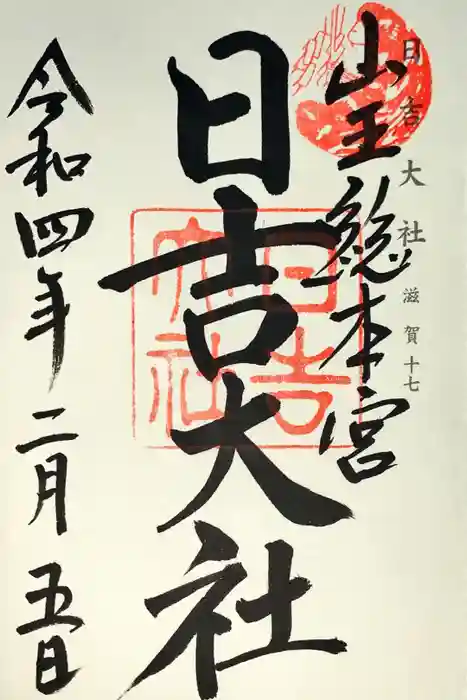 日吉大社 滋賀十七
山王総本宮
日吉大社
日吉大社
令和四年二月五日